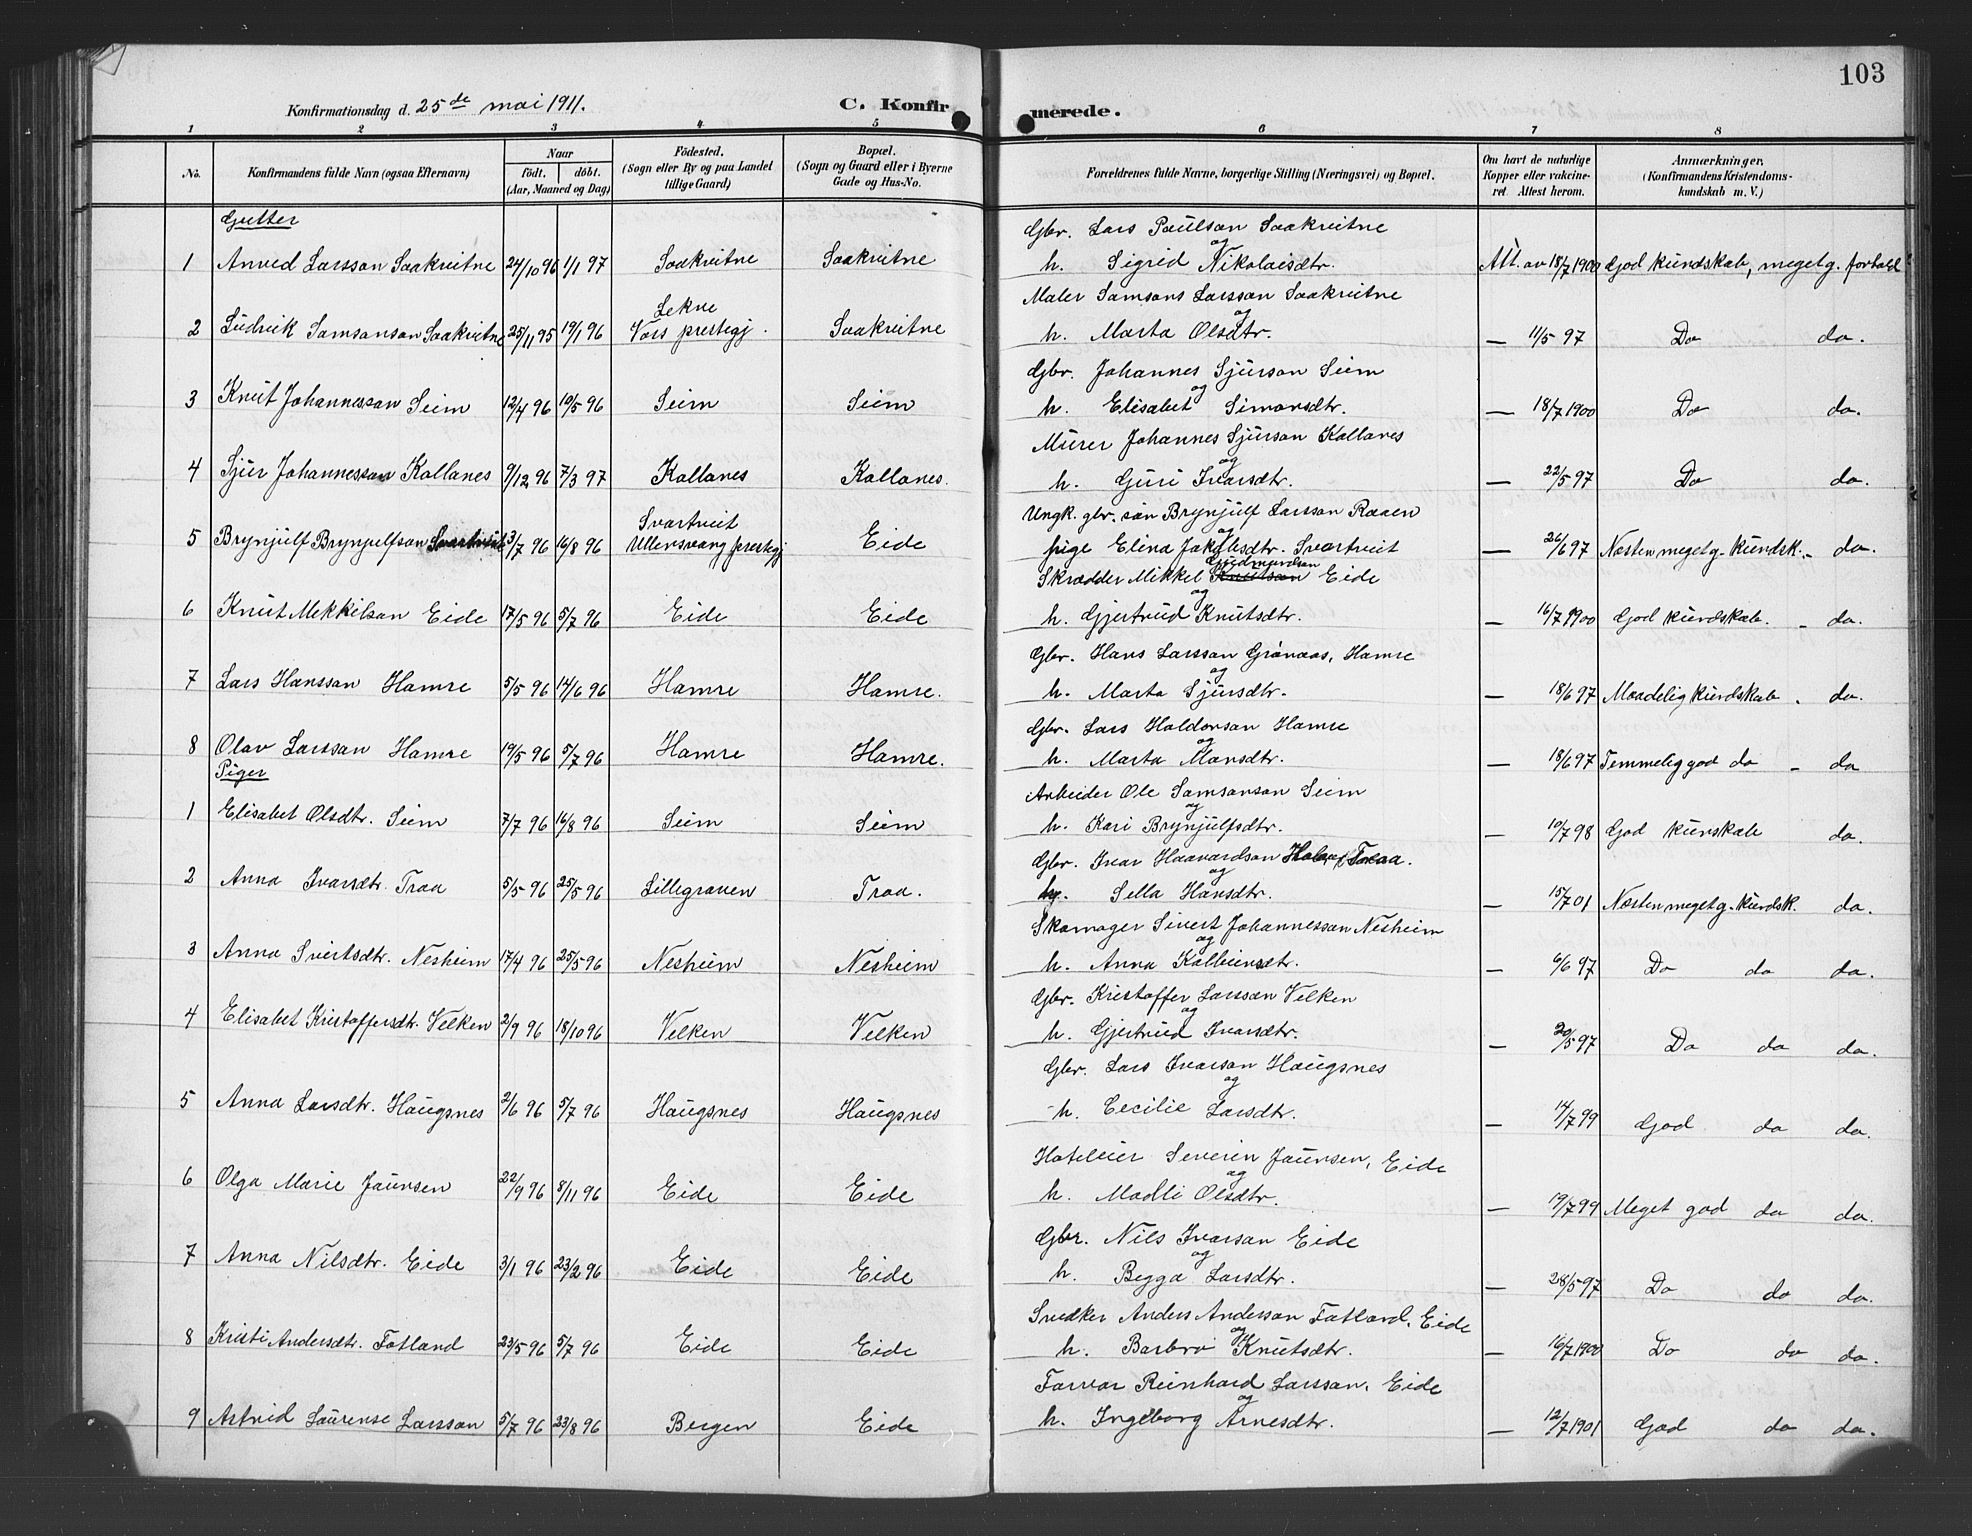 103
Konfirmationsdag d. 25de mai 1911.
C. Konfirmerede.
1 2 3 4 5 6 7 8
No.
Konfirmandens fulde Navn (ogsaa Efternavn)
Naar
født. døbt.
(Aar, Maaned og Dag)
Fødested.
(Sogn eller By og paa Landet
tillige Gaard)
Bopæl.
(Sogn og Gaard eller i Byerne
Gade og Hus-No.
Forældrenes fulde Navne, borgerlige Stilling (Næringsvei) og Bopæl.
Om havt de naturlige
Kopper eller vakcine-
ret. Attest herom.
Anmærkninger.
(Konfirmandens Kristendoms-
kundskab m. V.)
Gutter
Gbr. Lars Paulson Saakvitne
og
1 Anved Larsson Saakvitne 24/10 96 1/1 97 Saakvitne Saakvitne h. Sigrid Nikolaisdtr. Att. av 18/7 1900 God kundskab, meget g. forhold
Maler Samsons Larsson Saakvitne
Lekne og
2 Ludvik Samsonson Saakvitne 25/11 95 19/1 96 Vors prestegj. Saakvitne h. Marta Olsdtr. — 11/5 97 Do do.
Gbr. Johannes Sjurson Seim
og
3 Knut Johannesson Seim 12/4 96 19/5 96 Seim Seim h. Elisabet Simonsdtr. — 18/7 1900 Do do.
Murer Johannes Sjurson Kollanes
og
4 Sjur Johannesson Kollanes 9/12 96 7/3 97 Kollanes Kollanes. h. Guri Ivarsdtr. — 22/5 97 Do do.
Ungk. gbr. søn Brynjulf Larsson Raaen
Svartveit og
5 Brynjulf Brynjulfson Svartveit 3/7 96 16/8 96 Ullensvang prestegj Eide pige Elina Jakobsdtr. Svartveit — 26/6 97 Næsten meget g. kundsk. - do.
Gudmundson
Skrædder Mikkel Knutson Eide
og
6 Knut Mekkilson Eide 17/5 96 5/7 96 Eide Eide h. Gjertrud Knutsdtr. — 16/7 1900 God kundskab. - do.
Gbr. Hans Larsson Grønaas, Hamre
og
7 Lars Hansson Hamre 5/5 96 14/6 96 Hamre Hamre. h. Marta Sjursdtr. — 18/6 97 Maadelig kundskab - do.
Gbr. Lars Haldorson Hamre
og
8 Olav Larsson Hamre 19/5 96 5/7 96 Hamre Hamre. h. Marta Monsdtr. — 18/6 97 Temmelig god do - do
Piger
Arbeider Ole Samsonson Seim
og
1 Elisabet Olsdtr. Seim 7/7 96 16/8 96 Seim Seim h. Kari Brynjulfsdtr. — 10/7 98 God kunskab do.
Gbr. Ivar Haavardson Traa.
og
2 Anna Ivarsdtr. Traa 5/5 96 25/5 96 Lillegraven Traa. h. Sella Hansdtr. — 15/7 01 Næsten meget g. kundsk. do.
Skomager Sivert Johannesson Nesheim
og
3 Anna Sivertsdtr. Nesheim 17/4 96 25/5 96 Nesheim Nesheim h. Anna Kolbeinsdtr. — 6/6 97 Do do do.
Gbr. Kristoffer Larsson Velken
og
4 Elisabet Kristoffersdtr. Velken 2/9 96 18/10 96 Velken Velken h. Gjertrud Ivarsdtr. — 20/5 97 Do do do.
Gbr. Lars Ivarson Haugsnes
og
5 Anna Larsdtr. Haugsnes 2/6 96 5/7 96 Haugsnes Haugsnes h. Cecilie Larsdtr. — 14/7 99 God do do.
Hoteleier Severin Jaunsen, Eide
og
6 Olga Marie Jaunsen 22/9 96 8/11 96 Eide Eide h. Madli Olsdtr. — 19/7 99 Meget god do do.
Gbr. Nils Ivarson Eide
og
7 Anna Nilsdtr. Eide 3/1 96 23/2 96 Eide Eide h. Begga Larsdtr. — 28/5 97 Do do do.
Snedker Anders Anderson Fatland, Eide
og
8 Kristi Andersdtr. Fatland 23/5 96 5/7 96 Eide Eide h. Barbro Knutsdtr. — 16/7 1900 Do do do.
Farvar Reinhard Larsson, Eide
og
9 Astrid Laurense Larsson 5/7 96 23/8 96 Bergen Eide h. Ingeborg Arnesdtr. — 12/7 1901 God do do.